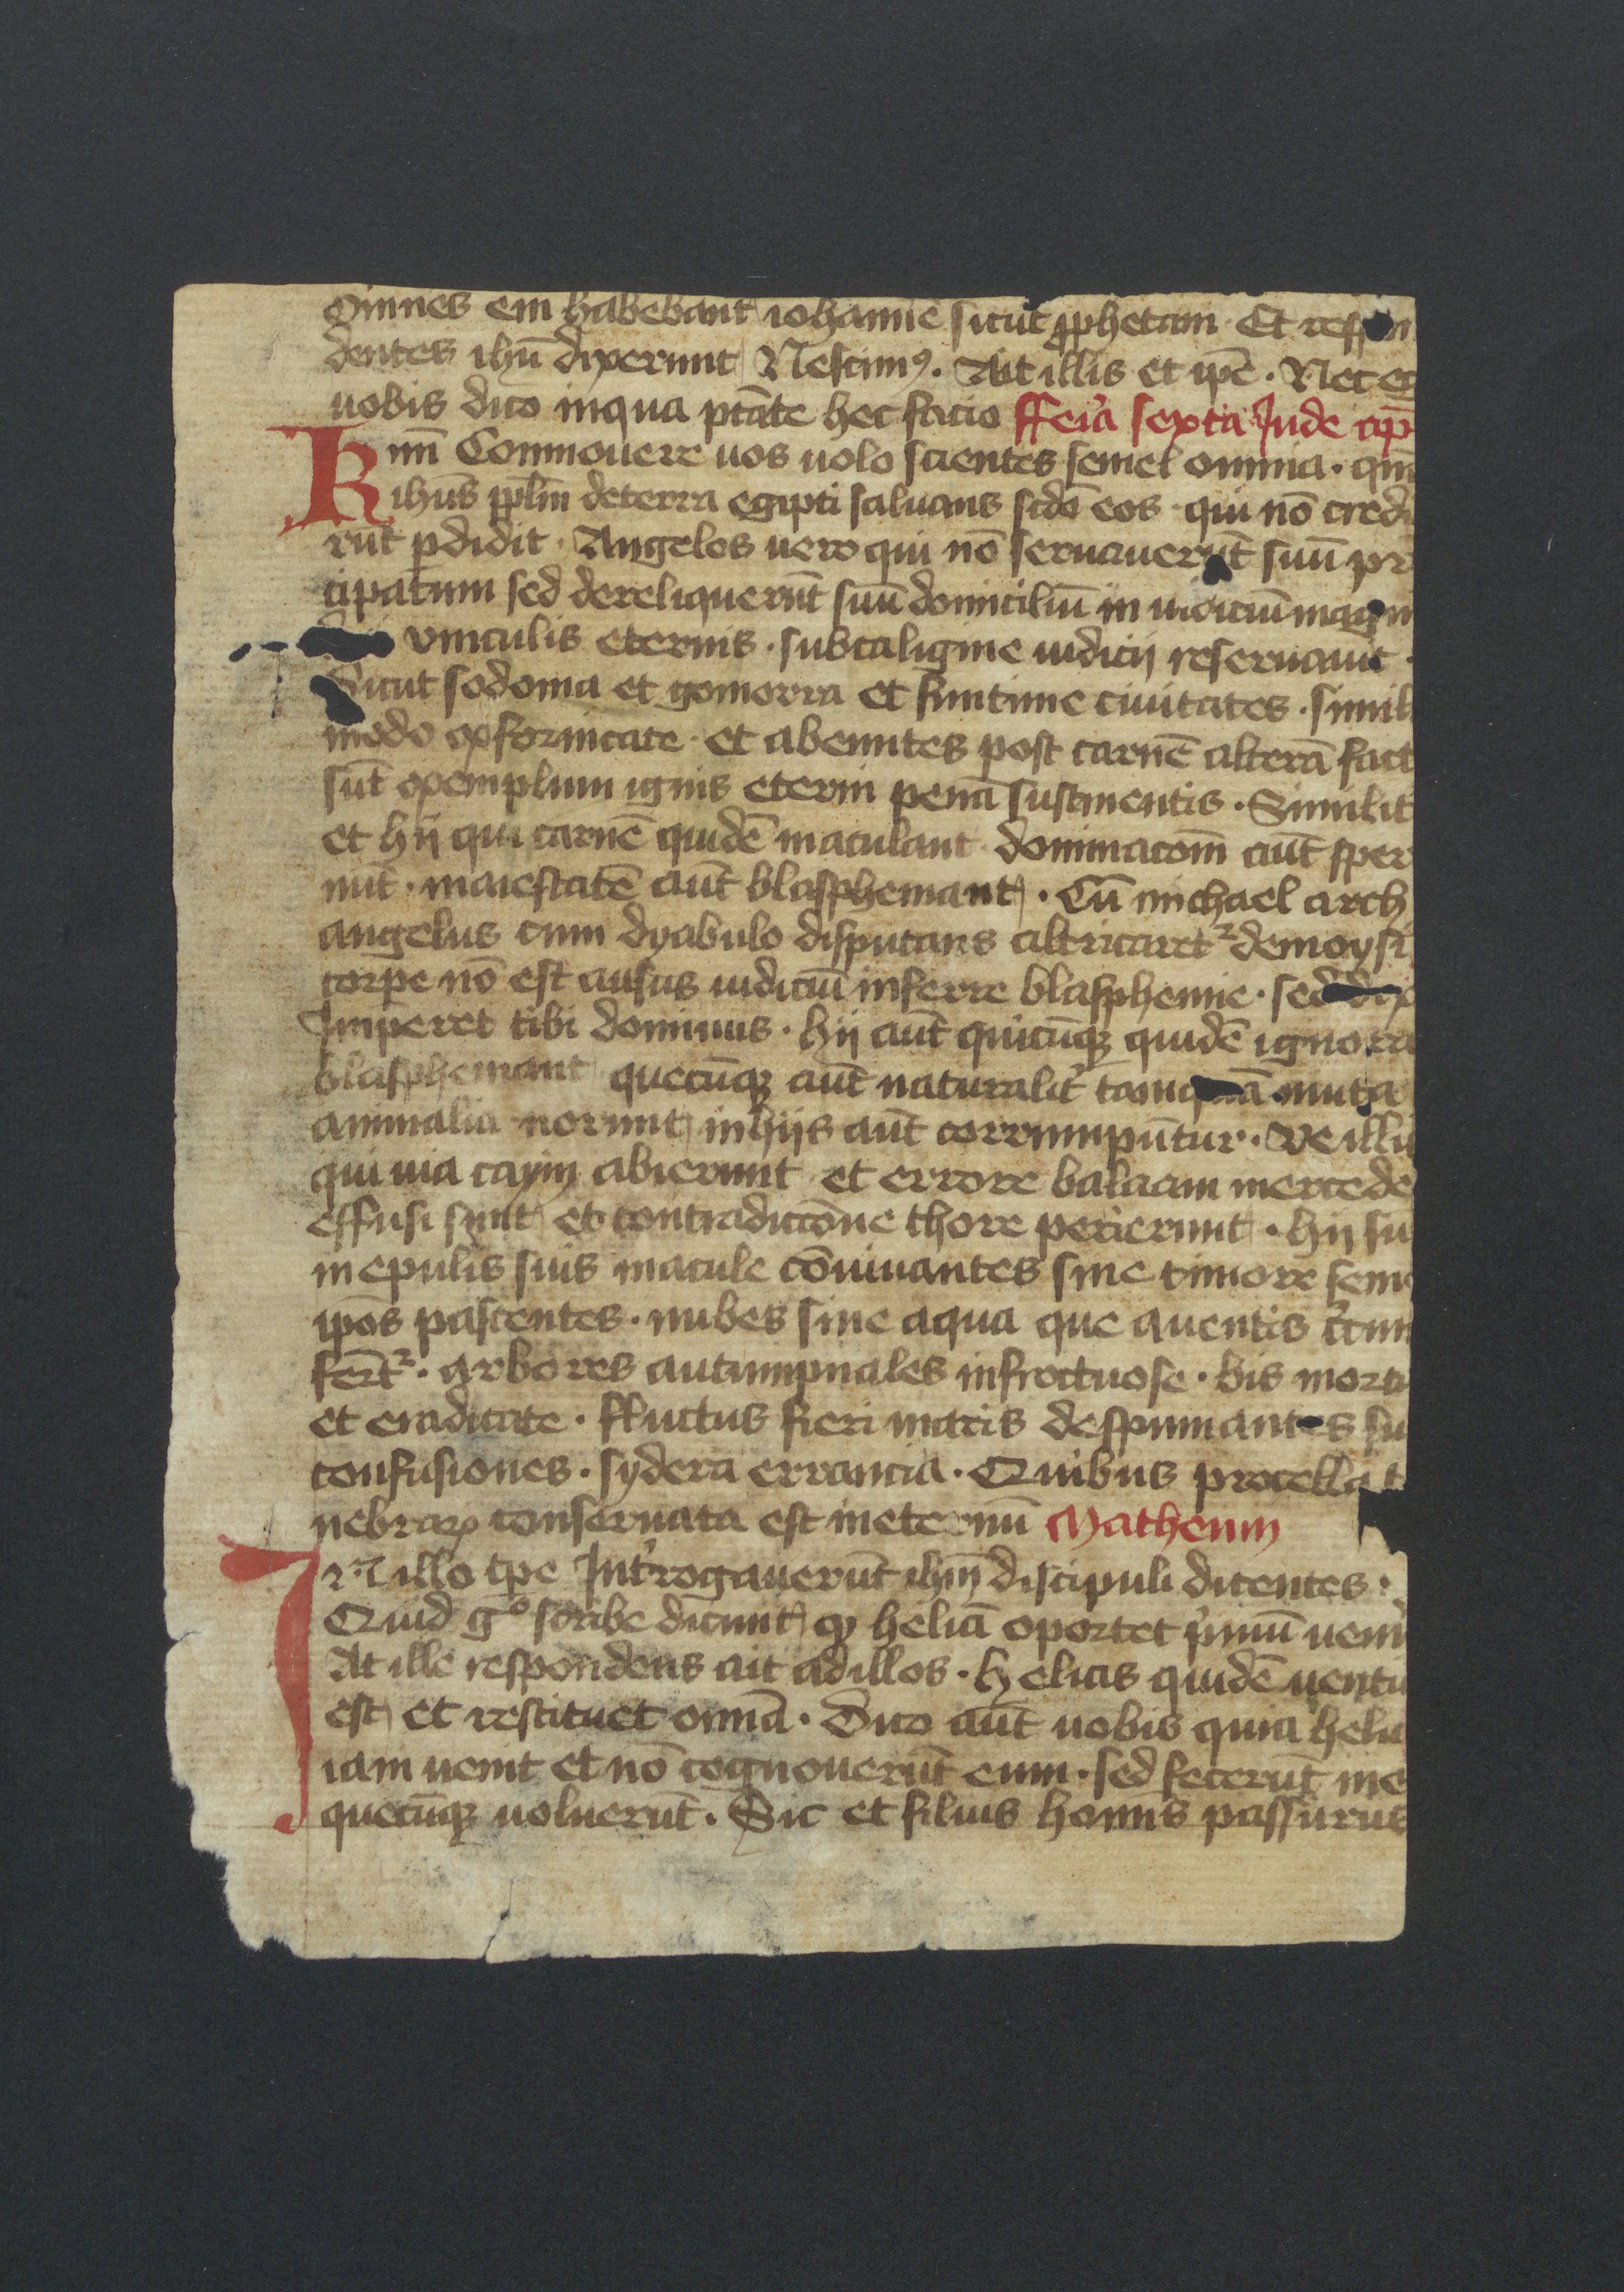 omnes em̄ habebant iohannē sicut ꝓphetam Et respon
dentes ihū dixerunt Nescimꝰ. Ait illis et ip̄e. Nec eg
uobis dico inqua ptāte hec facio fferia sexta Jude ap̄
Krm̄ Commouere uos uolo scientes semel omnia. qm̄
ihūs ppl̄m deterra egipti saluans scdō eos qui nō credi
rūt ꝑdidit. Angelos uero qui nō seruauerūt suū pri
cipatum sed dereliquerūt suū domiciliū in iudiciū magni
vinculis eternis. subcaligine iudicij reseruauit.
Sicut sodoma et gomorra et finitime ciuitates. simili
modo exfornicate et abeuntes post carnē alterā fact
sūt exemplum ignis eterni penā sustinentis. Similit
et hij qui carnē quidē maculant dominacōm aūt sper
nūt. maiestatē aūt blasphemant. Cū michael arch
angelus cum dyabulo disputans altricaretᷣ demoysi
corpe nō est ausus iudiciū inferre blasphemie. sed dix
Imperet tibi dominus. hij aūt quicūqꝫ quidē ignora
blasphemant quecūqꝫ aūt naturalit̓ tamquā muta
animalia norunt inhijs aūt corrumpūtur. Ve illis
qui uia cayin abierunt et errore balaam mercede
effusi sunt et contradictōne chore perierunt. hij su
in epulis suis macule cōuiuantes sine timore seme
ip̄os pascentes. nubes sine aqua que auentis c̓cum
ferūtᷣ. arbores autumpnales infructuose. bis mortu
et eradicate. fluctus fieri maris despumantes su
confusiones. sydera errancia. Quibus procella t
nebraꝝ conseruata est ineternū Matheum
In illo tpe Int̓rogauerūt ihm̄ discipuli dicentes.
Quid gͦ scribe dicunt ꝙ heliā oportet p̓mū ueni
At ille respondens ait adillos. helias quidē uentu
est et restituet omīa. Dico aūt uobis quia helia
iam uenit et nō cognouerūt eum. sed fecerūt ine
quecūqꝫ uoluerūt. Sic et filius hoīnis passurus